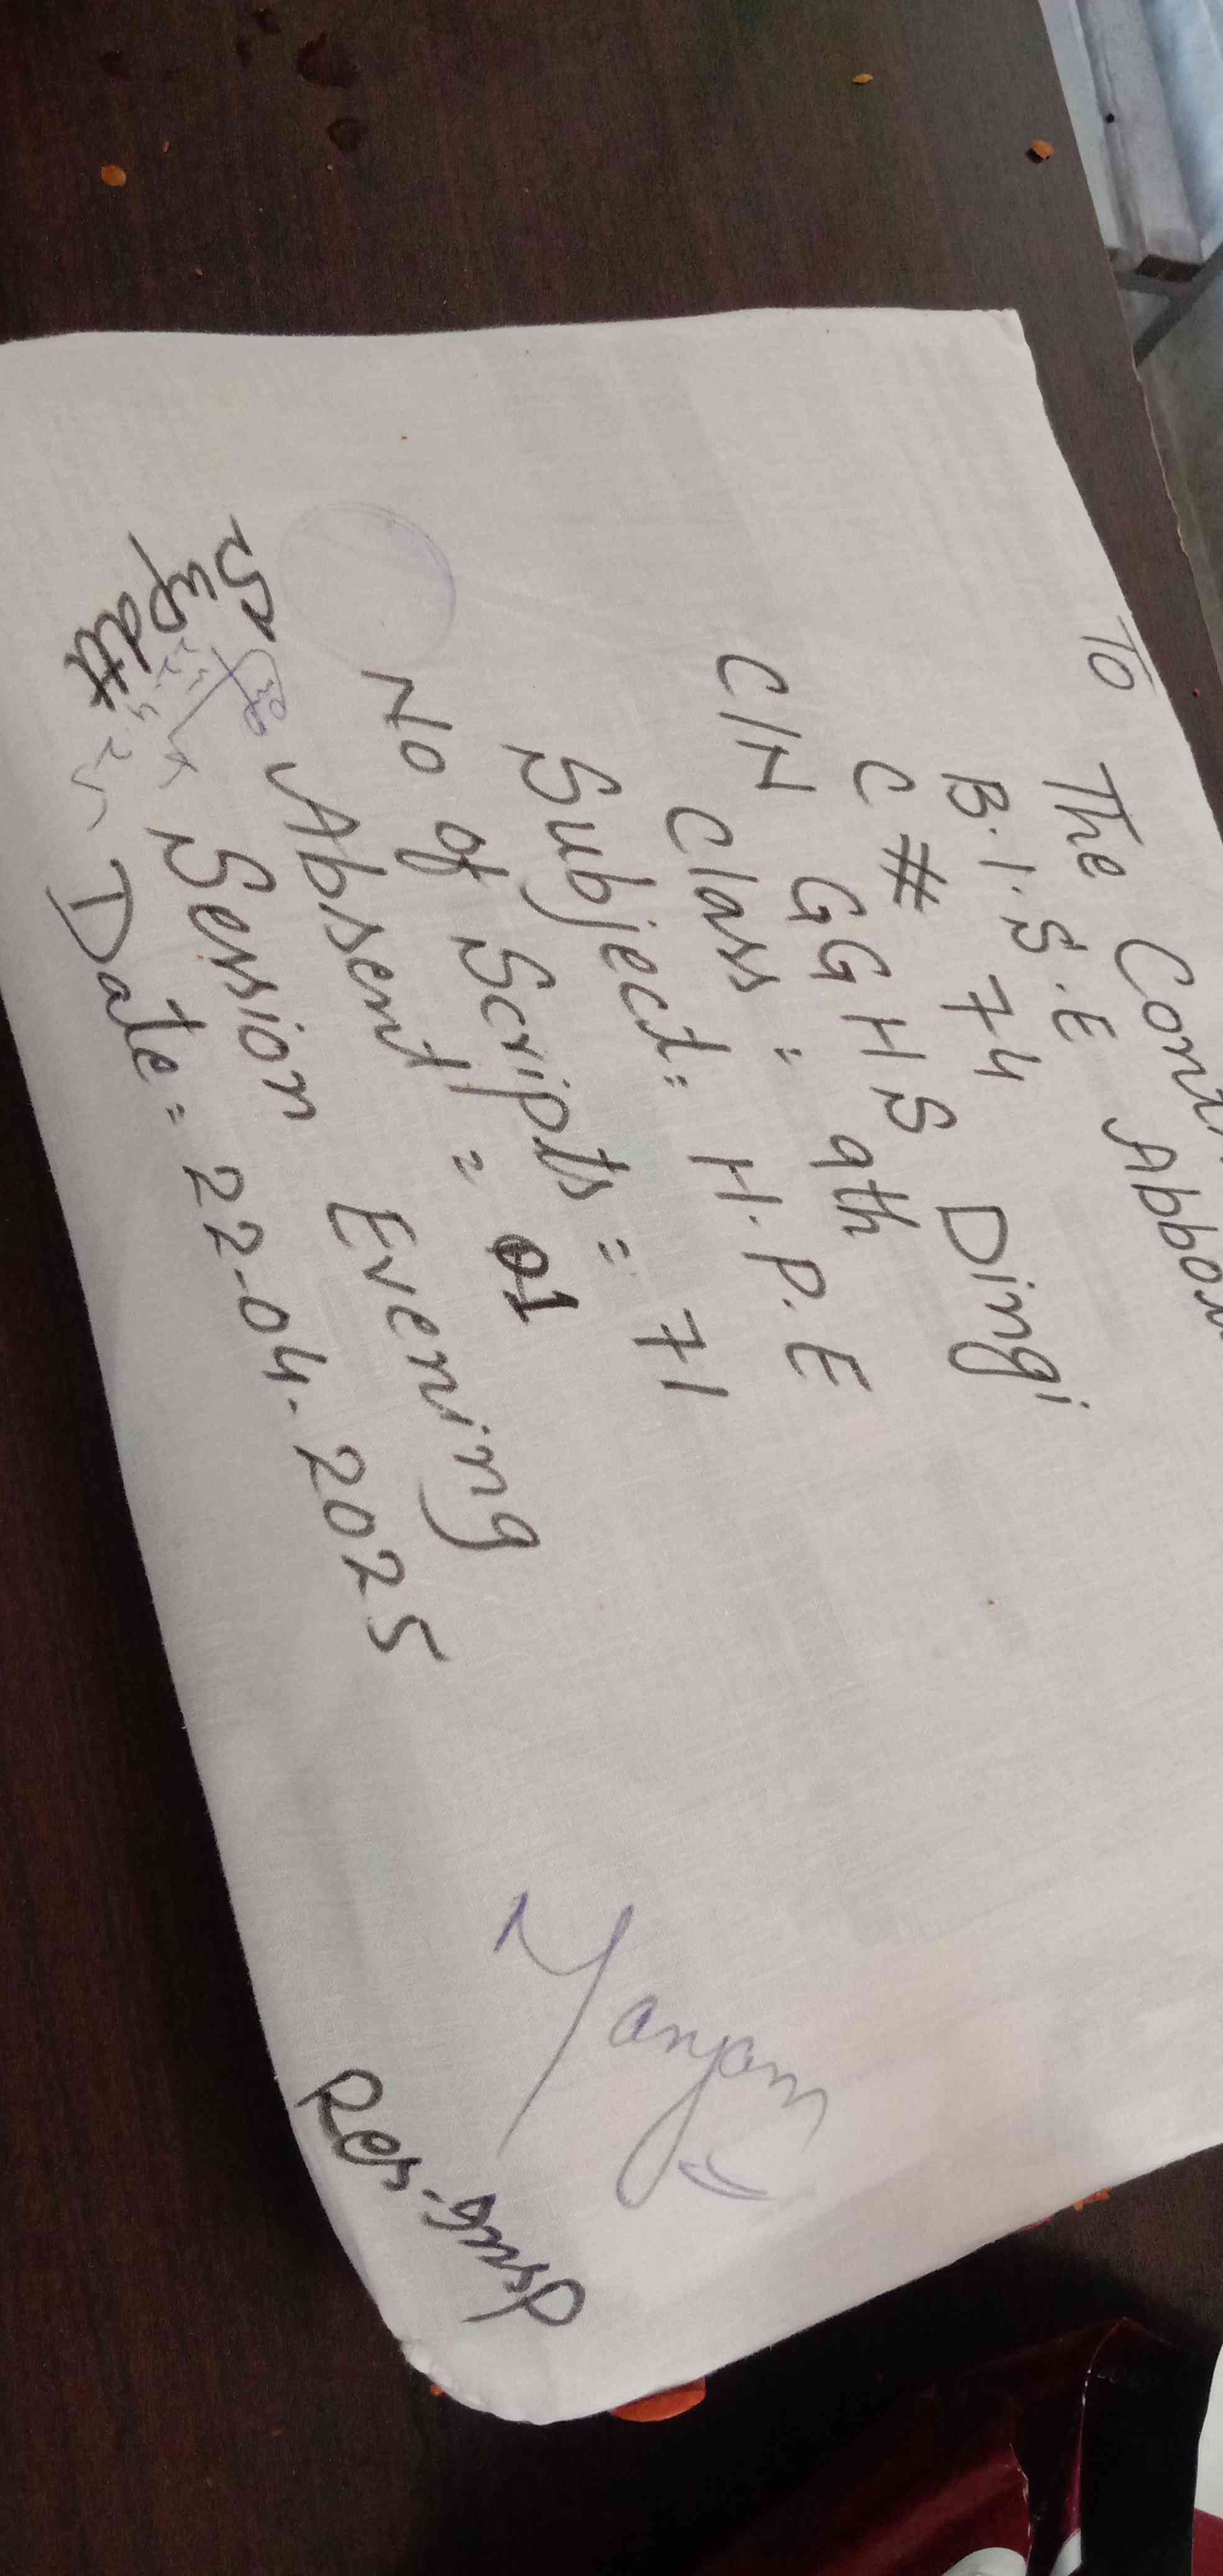 To
The
B.I.S.E
C # 74
C/N GGHS Dingi
Class = 9th
Subject = H.P.E
No of Scripts = 71
Absent = 01
Session Evening
Date = 22-04-2025
Supdtt
Maryam
Res-Insp